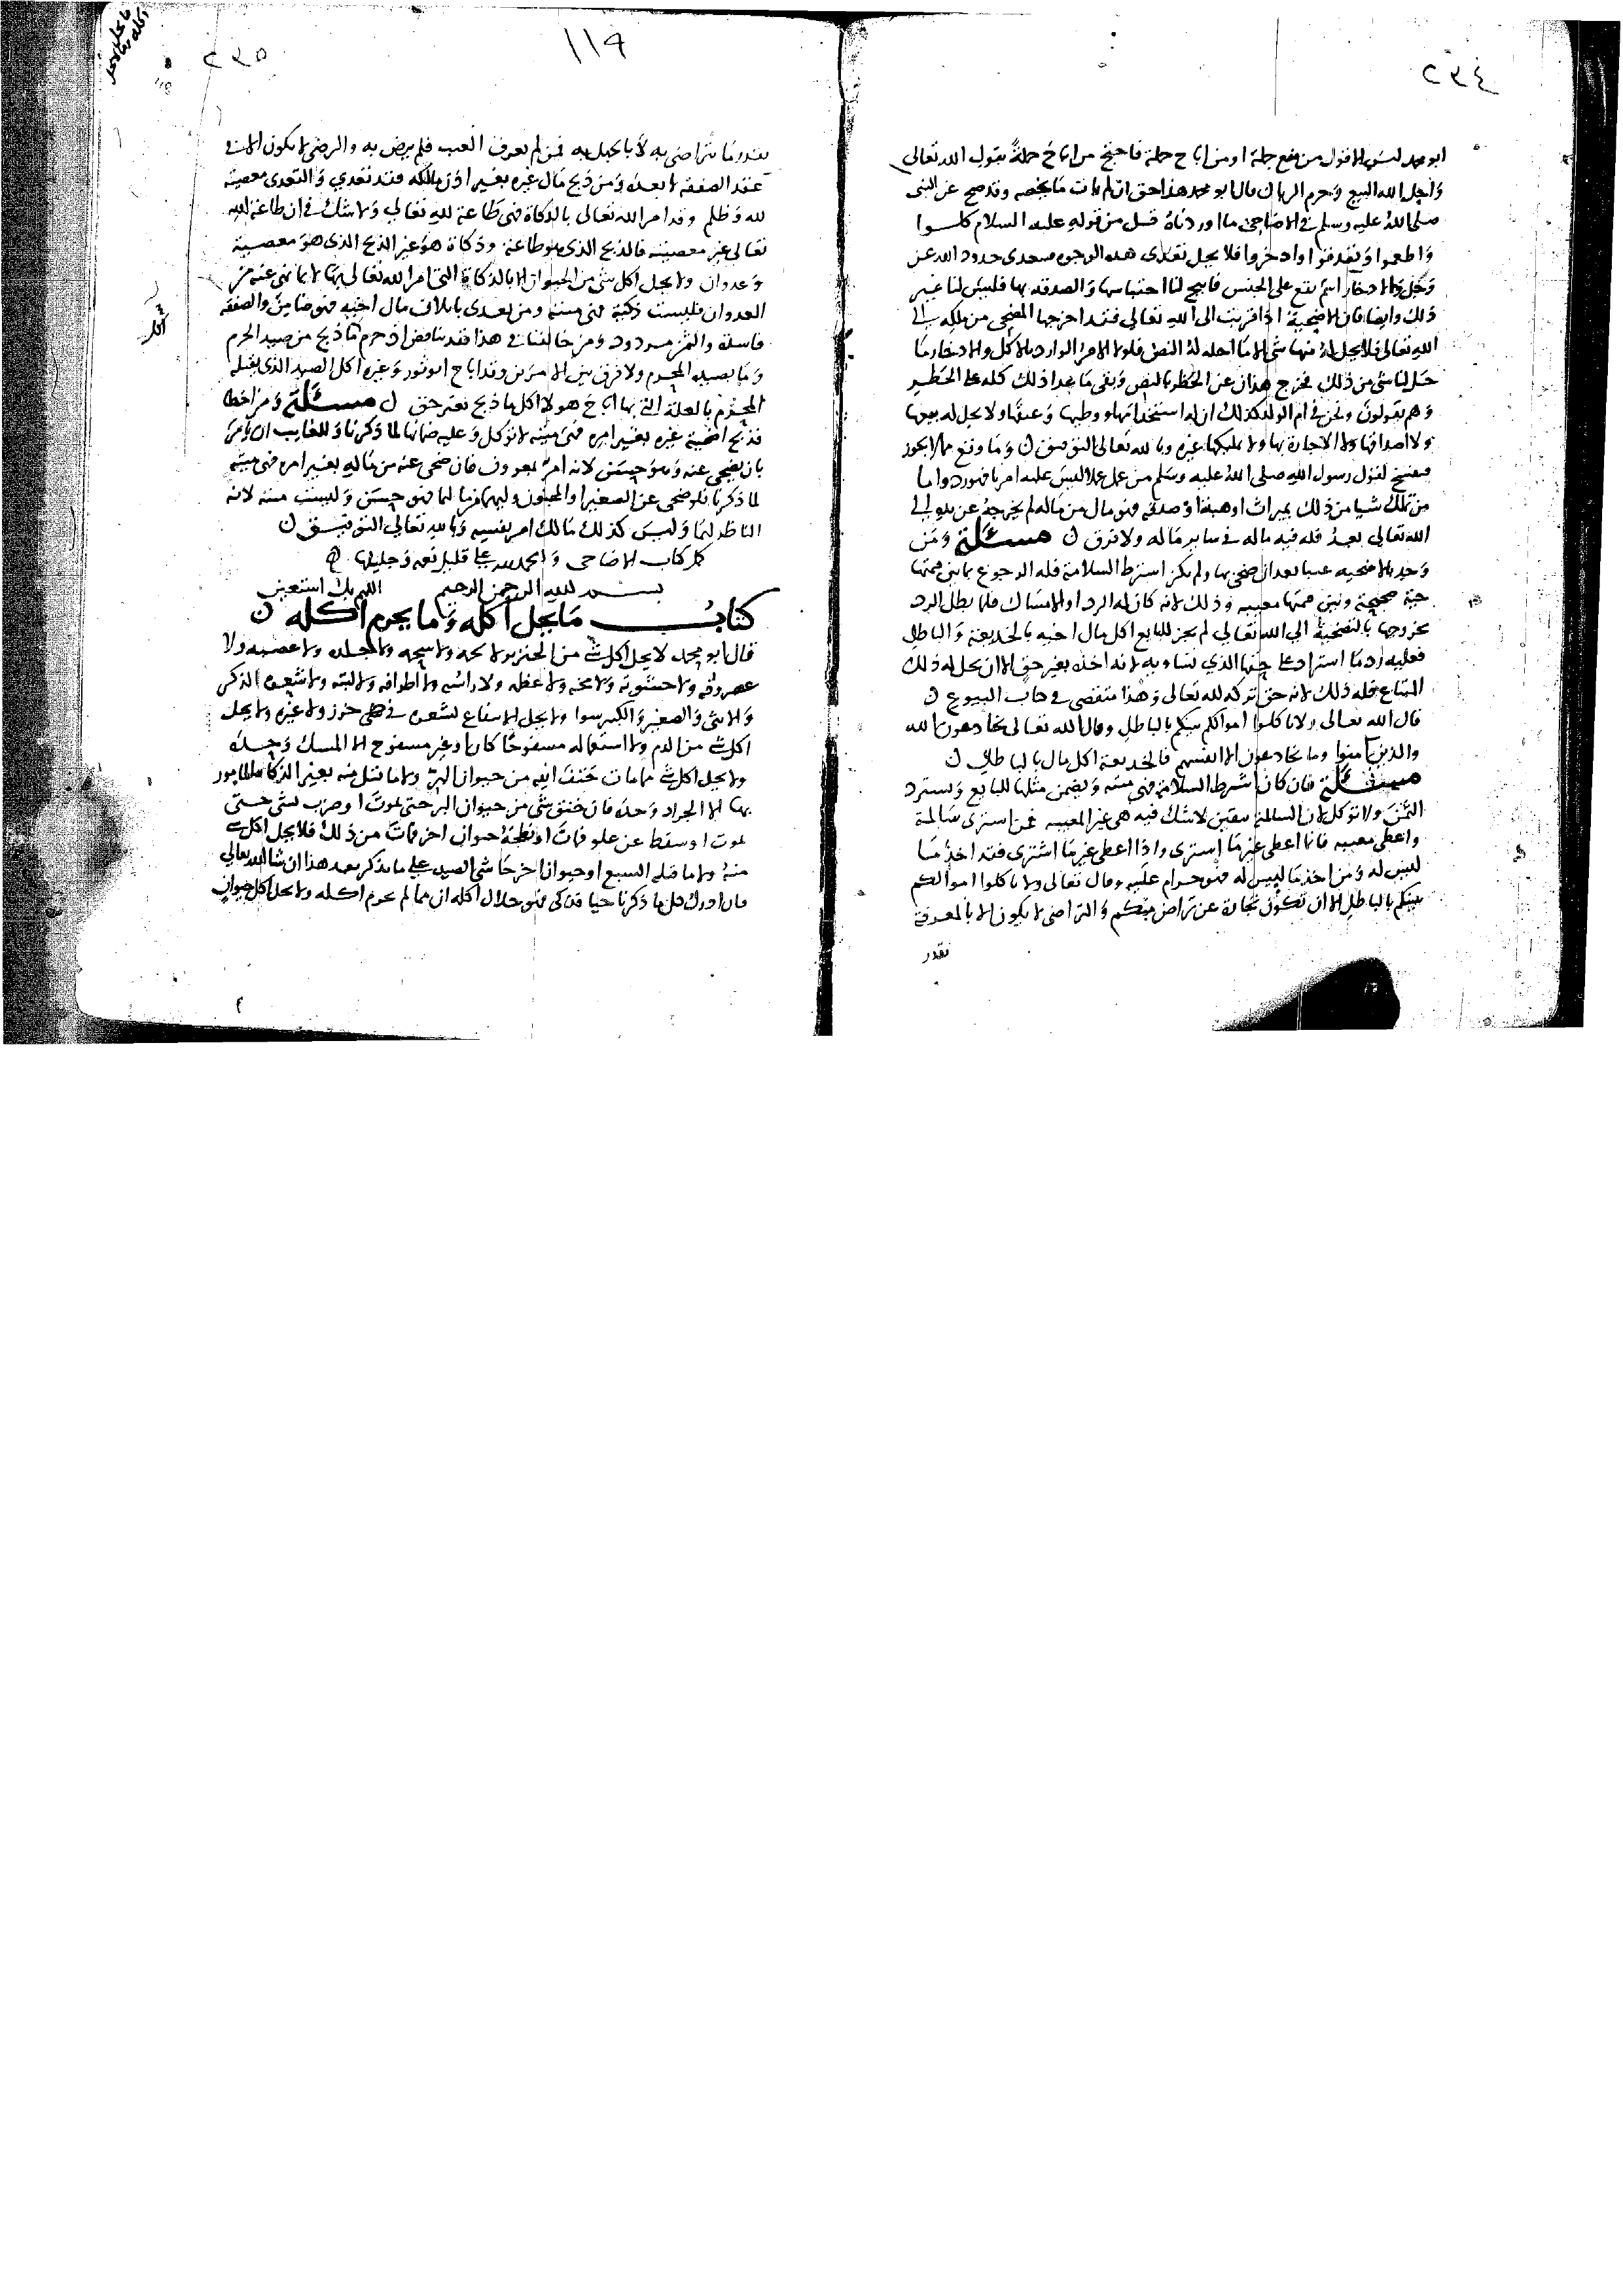 ٢٣٤
ابو محمد ليس الا قول من منع جملة او من اباح جملة فاحتج من اباح جملة بقول الله تعالى
واحل الله البيع وحرم الربا ن قال ابو محمد هذا حق ان لم يات ما يخصه وقد صح عن النبى
صلى الله عليه وسلم في الاضاحى ما اوردناه قبل من قوله عليه السلام كلوا
واطعموا وتصدقوا وادخروا فلا يحل تعدى هذه الوجوه فيتعدى حدود الله عز
وجل والادخار اسم يقع على الحبس فابيح لنا احتباسها والصدقة بها فليس لنا غير
ذلك وايضا فان الاضحية اذا قربت الى الله تعالى فقد اخرجها المضحى من ملكه الى
الله تعالى فلا يحل له منها شى الا ما احله له النص فلولا الامر الوارد بالاكل والادخار ما
حل لنا شى من ذلك فخرج هذان عن الحظر بالنص وبقى ما عدا ذلك كله على الحظر
وهم يقولون ونحن في ام الولد كذلك ان له استخدامها ووطيها وعتقها ولا يحل له بيعها
ولا اصداقها ولا الاجارة بها ولا تمليكها غيره وبالله تعالى التوفيق ن وما وقع مما لا يجوز
فسخ لقول رسول الله صلى الله عليه وسلم من عمل عملا ليس عليه امرنا فهو رد واما
من تملك شيا من ذلك بميراث او هبة او صدقة فهو مال من ماله لم يخرجه عن يده الى
الله تعالى بعد فله فيه ماله في ساير ماله ولا فرق ن مسئلة ومن
وجد بالاضحية عيبا بعد ان ضحى بها ولم يكن اشترط السلامة فله الرجوع بما بين قيمتها
حية صحيحة وبين قيمتها معيبة وذلك لانه كان له الرد او الامساك فلما بطل الرد
بخروجها بالتضحية الى الله تعالى لم يجز للبايع اكل مال اخيه بالخديعة والباطل
فعليه رد ما استزاد على حقها الذي تساويه لانه اخذه بغير حق الا ان يحل له ذلك
المبتاع فله ذلك لانه حق تركه لله تعالى وهذا متقصى في كتاب البيوع ن
قال الله تعالى ولا تاكلوا اموالكم بينكم بالباطل وقال الله تعالى يخادعون الله
والذين آمنوا وما يخادعون الا انفسهم فالخديعة اكل مال بالباطل ن
مسئلة فان كان اشترط السلامة فهى ميتة ويضمن مثلها للبايع ويسترد
الثمن ولا توكل لان السالمة بيقين لا شك فيه هى غير المعيبة فمن اشترى سالمة
واعطى معيبة فانما اعطى غير ما اشترى واذا اعطى غير ما اشترى فقد اخذ ما
ليس له ومن اخذ ما ليس له فهو حرام عليه وقال تعالى ولا تاكلوا اموالكم
بينكم بالباطل الا ان تكون تجارة عن تراض منكم والتراضى لا يكون الا بالمعرفة
بقدر
٢٣٥
١١٩
بقدر ما تراضى به لا بالجهل به فمن لم يعرف العيب فلم يرض به والرضى لا يكون الا في
عقد الصفقة لا بعده ومن ذبح مال غيره بغير اذن مالكه فقد تعدي والتعدى معصية
لله وظلم وقد امر الله تعالى بالذكاة فهى طاعة لله تعالى ولا شك في ان طاعة لله
تعالى غير معصيته فالذبح الذى هو طاعة وذكاة هو غير الذبح الذى هو معصية
وعدوان ولا يحل اكل شى من الحيوان الا بالذكاة التى امر الله تعالى بها لا بما نهى عنه من
العدوان فليست ذكية فهى ميتة ومن تعدى باتلاف مال اخيه فهو ضامن والصفقة
فاسدة والثمن مردود ومن خالفنا في هذا فقد تناقض اذ حرم ما ذبح من صيد الحرم
وما يصيده المحرم ولا فرق بين الامرين وقد اباح ابو ثور وغيره اكل الصيد الذى يقتله
المحرم بالعلة التى بها اباح هولا اكل ما ذبح بغير حق ن مسئلة ومن اخطا
فذبح اضحية غيره بغير امره فهى ميتة لا توكل وعليه ضمانها لما ذكرنا وللغايب ان يامر
بان يضحى عنه وهو حسن لانه امر بمعروف فان ضحى عنه من ماله بغير امره فهى ميتة
لما ذكرنا فلو ضحى عن الصغير او المجنون وليهما من مالهما فهو حسن وليست ميتة لانه
الناظر لهما وليس كذلك مالك امر نفسه وبالله تعالي التوفيق ن
كمل كتاب الاضاحى والحمد لله على قليل نعمه وجليلها
بسم الله الرحمن الرحيم اللهم بك استعين
كتاب ما يحل اكله وما يحرم اكله ن
قال ابو محمد لا يحل اكل شى من الخنزير لا لحمه ولا شحمه ولا جلده ولا عصبه ولا
غضروفه ولا حشوته ولا مخه ولا عظمه ولا راسه ولا اطرافه ولا لبنه ولا شعره الذكر
والانثى والصغير والكبير سوا ولا يحل الانتفاع بشعره في خرز ولا غيره ولا يحل
اكل شى من الدم ولا استعماله مسفوحا كان او غير مسفوح الا المسك وحده
ولا يحل اكل شى مما مات حتف انفه من حيوان البر ولا ما قتل منه بغير الذكاة المامور
بها الا الجراد وحده فان خنق شى من حيوان البر حتى يموت او ضرب بشى حتى
يموت او سقط عن علو فمات او نطحه حيوان اخر فمات من ذلك فلا يحل اكل شى
منه ولا ما قتله السبع او حيوان اخر حاشى الصيد على ما نذكر بعد هذا ان شا الله تعالي
فان ادرك كل ما ذكرنا حيا فذكى فهو حلال اكله ان مما لم يحرم اكله ولا يحل اكل حيوان